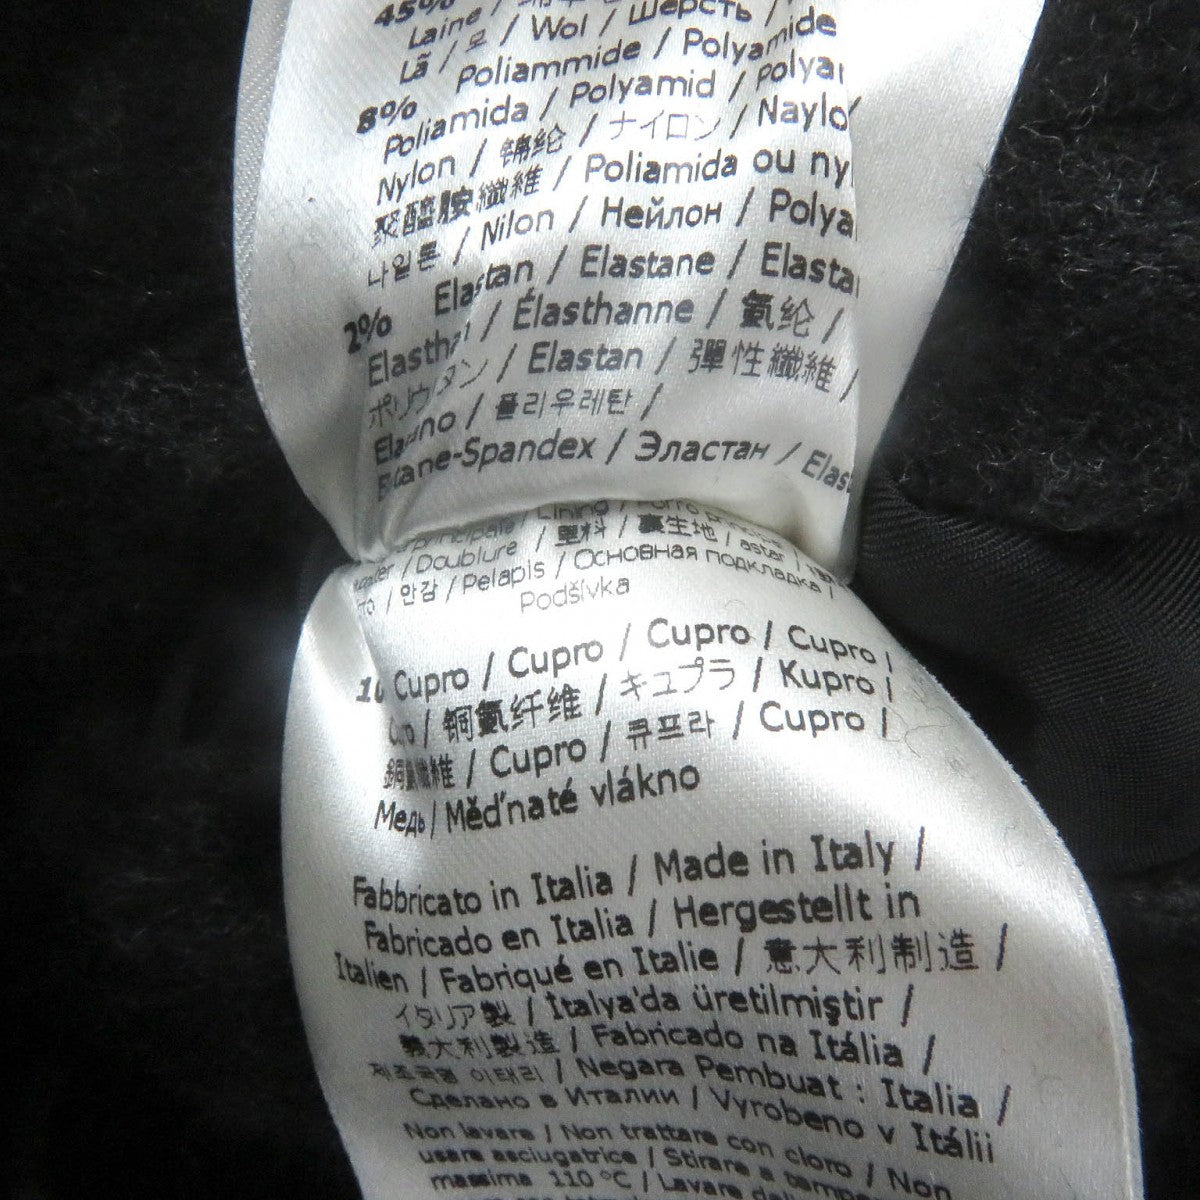 45%
Laine / / Wol / Шерсть /
Lã / 모 / Poliammide / Polyamide
8% Poliamida / Polyamid /
Nylon / 锦纶 / ナイロン /
聚醯胺纖維 / Poliamida ou
나일론 / Nilon / Нейлон /
2% Elastan / Elastane /
/ Élasthanne / 氨纶 /
ポリウレタン / Elastan / 彈性纖維 /
/ 폴리우레탄 /
/ Эластан /
principale / Lining /
/ Doublure / 里料 / 裏生地 / astar /
/ 안감 / Pelapis / Основная подкладка /
Podšívka
Cupro / Cupro / Cupro / Cupro /
/ 铜氨纤维 / キュプラ / Kupro /
銅氨纖維 / Cupro / 큐프라 / Cupro /
Медь / Měďnaté vlákno
Fabbricato in Italia / Made in Italy /
Fabricado en Italia / Hergestellt in
Italien / Fabriqué en Italie / 意大利制造 /
イタリア製 / İtalya'da üretilmiştir /
義大利製造 / Fabricado na Itália /
제조국명 이태리 / Negara Pembuat : Italia /
Сделано в Италии / Vyrobeno v Itálii
Non lavare / Non trattare con cloro / Non
usare asciugatrice / Stirare a
massima 110 °C / Lavare